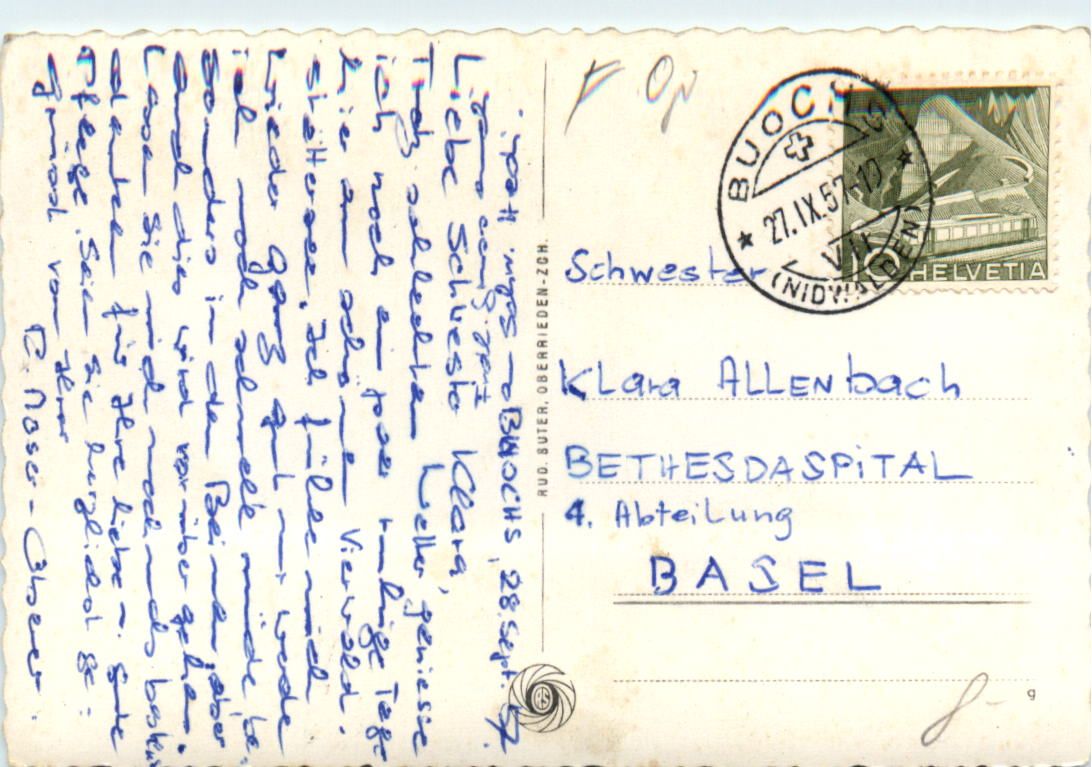 BUOCHS, 28. Sept. 57.
Liebe Schwester Klara,
Trotz schlechtem Wetter geniesse
ich noch ein paar ruhige Tage
hier am schönen Vierwald-
stättersee. Ich fühle mich
wieder ganz gut nur werde
ich noch schnell müde, be-
sonders in den Beinen, aber
auch dies wird vorüber gehen.
Lassen Sie mich nochmals bestens
danken für Ihre liebe u. gute
Pflege. Seien Sie herzlichst ge-
grüsst von Ihrer
Moser-
RUD. SUTER, OBERRIEDEN-ZCH.
BUOCHS
27.IX.57-10
VII
(NIDWALDEN)
10 HELVETIA
Schwester
Klara ALLENbach
BETHESDASPiTAL
4. Abteilung
BASEL
8-
g